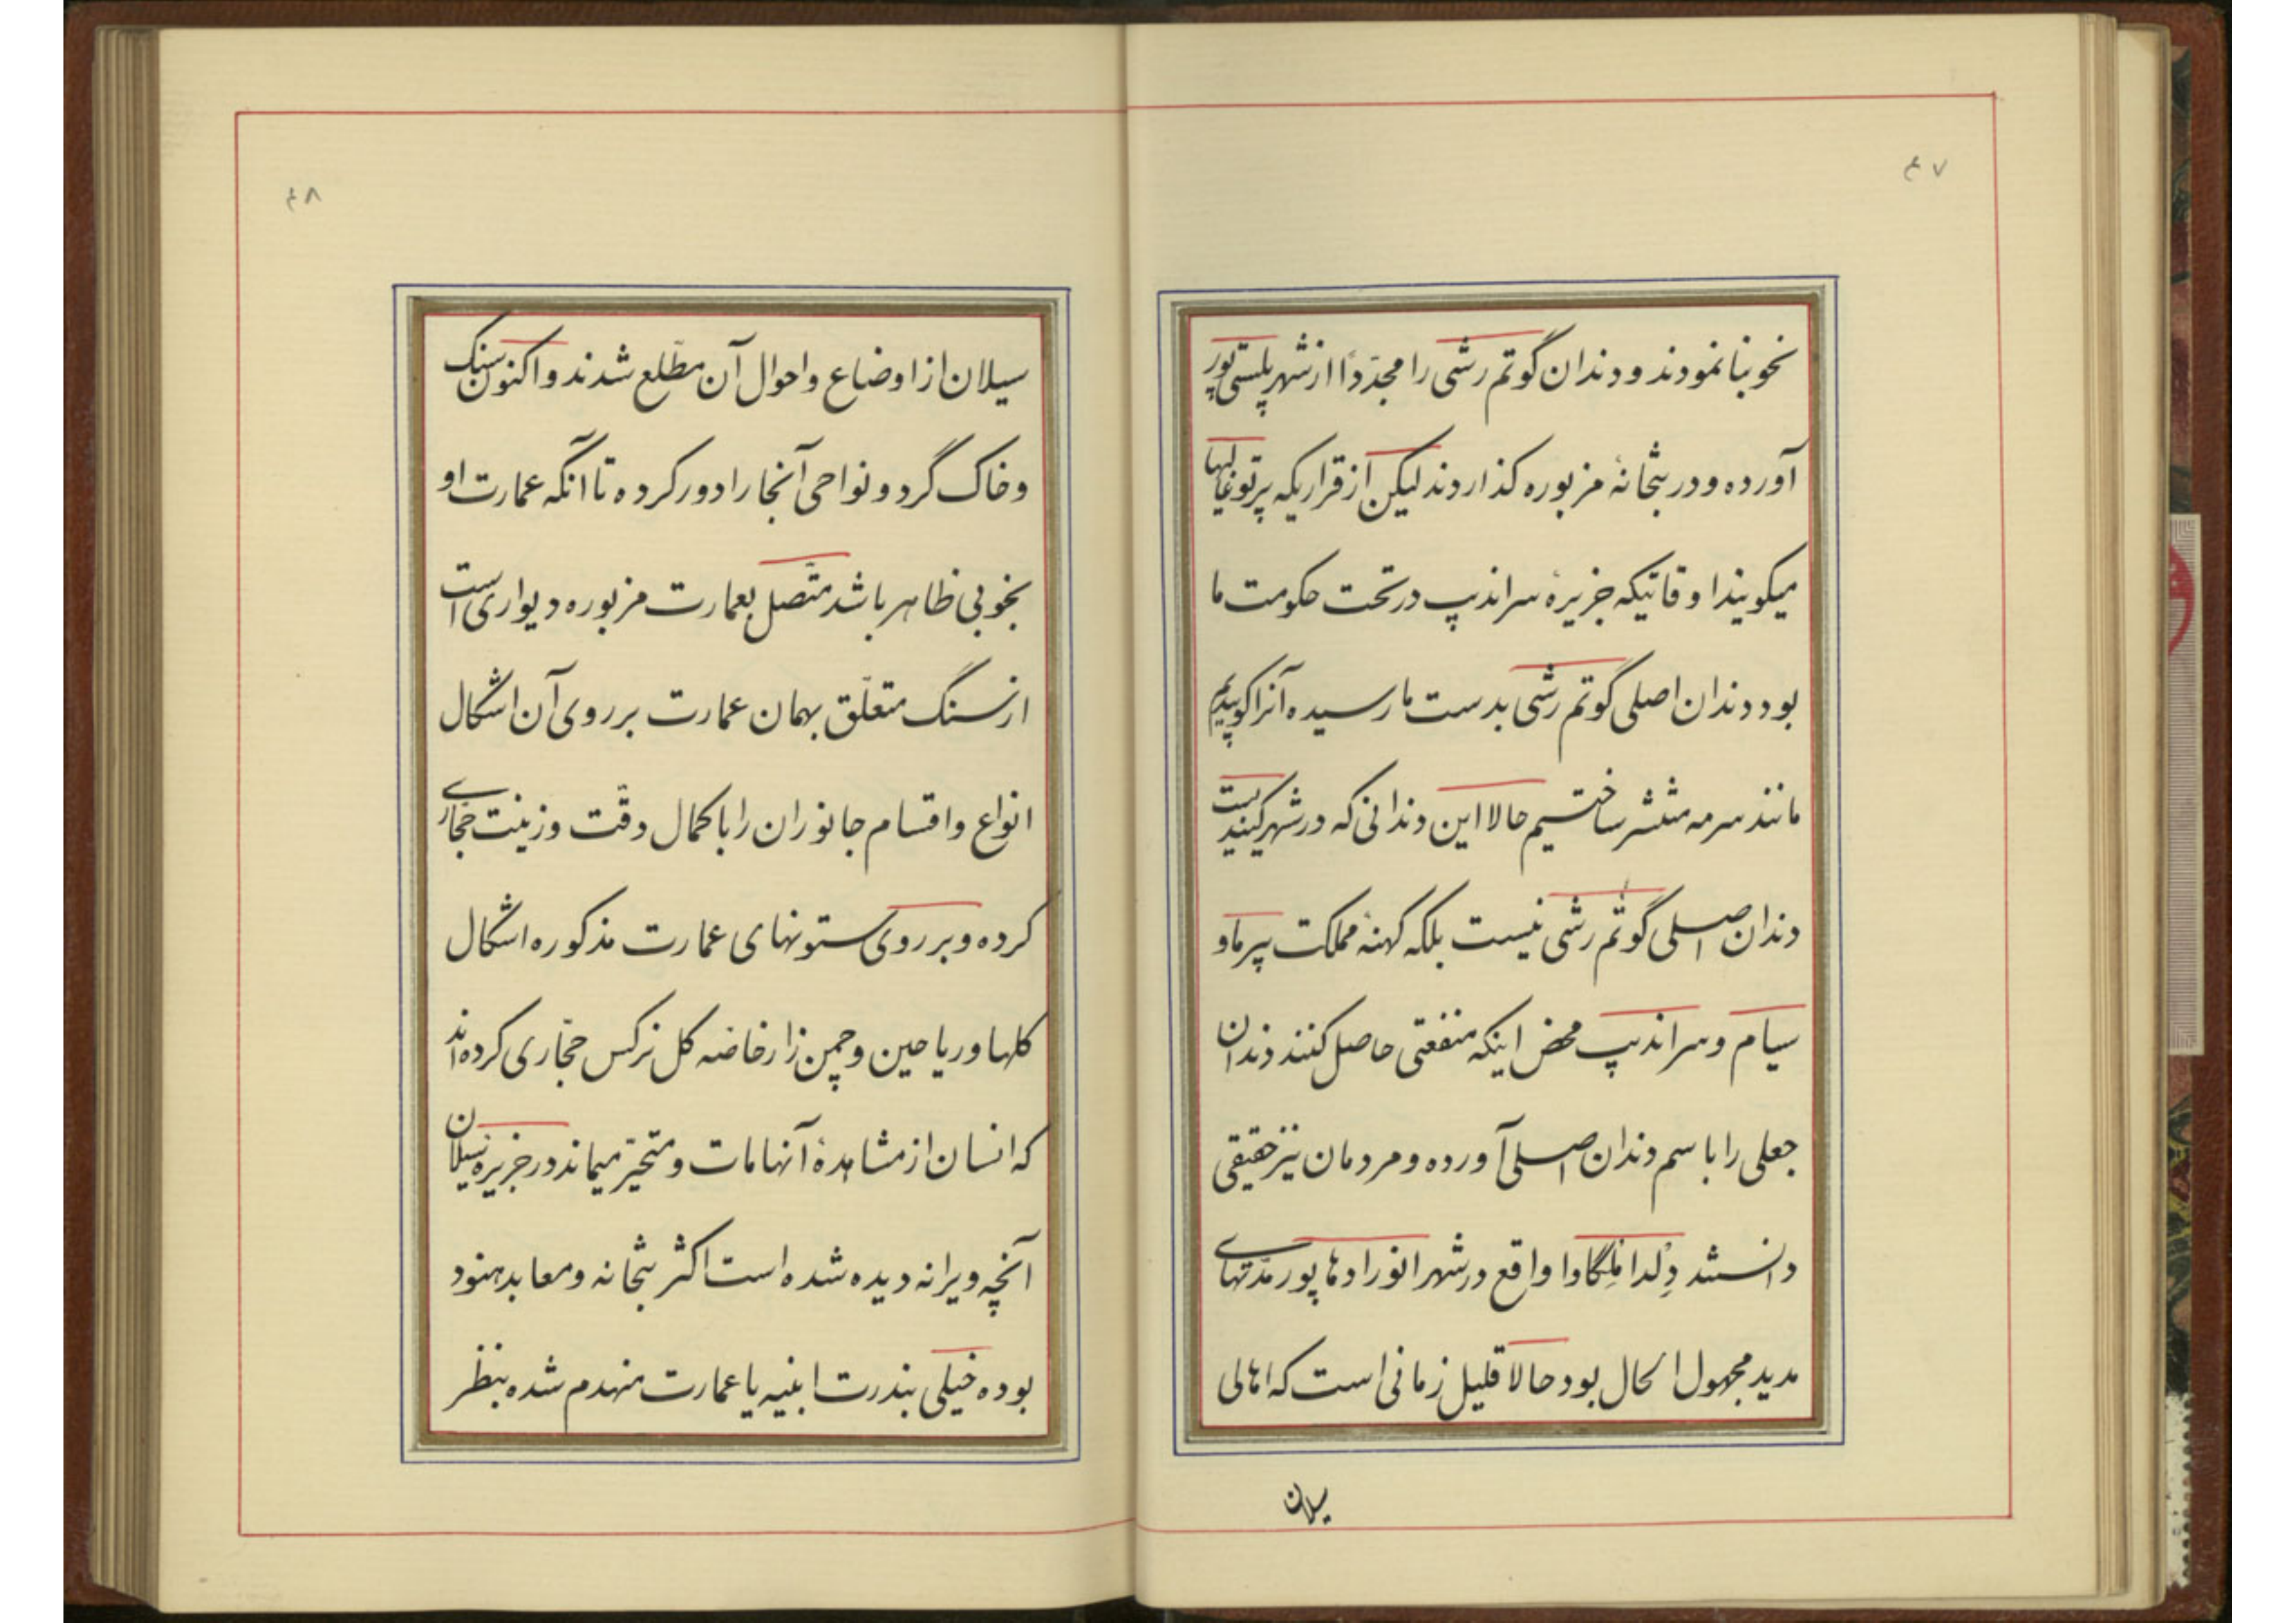 ۴۷
نحو بنا نمودند و دندان گوتم رشی را مجدّداً از شهر پلستی پور
آورده و در بتخانهٔ مزبوره کذاردند لیکن از قراریکه پرتوغالیها
میکویند اوقاتیکه جزیرهٔ سراندیپ در تحت حکومت ما
بود دندان اصلی گوتم رشی بدست ما رسیده آنرا کوبیدیم
مانند سرمه منتشر ساختیم حالا این دندانی که در شهر کیندیست
دندان اصلی گوتم رشی نیست بلکه کهنهٔ مملکت پیرماو
سیام و سراندیپ محض اینکه منفعتی حاصل کنند دندان
جعلی را باسم دندان اصلی آورده و مردمان نیز حقیقی
دانستند دلدا ملگاوا واقع در شهر انورادها پور مدّتهای
مدید مجهول الحال بود حالا قلیل زمانی است که اهالی
سیلان
۴۸
سیلان از اوضاع و احوال آن مطّلع شدند و اکنون سنک
و خاک گرد و نواحی آنجا را دور کرده تا آنگه عمارت او
بخوبی ظاهر باشد متّصل بعمارت مزبوره دیواری است
از سنگ متعلّق بهمان عمارت بر روی آن اشکال
انواع و اقسام جانوران را با کمال دقّت و زینت حجّاری
کرده و بر روی ستونهای عمارت مذکوره اشکال
کلها و ریاحین و چمن زار خاصه کل نرکس حجّاری کرده‌اند
که انسان از مشاهدهٔ آنها مات و متحیّر میماند در جزیره سیلان
آنچه ویرانه دیده شده است اکثر بتخانه و معابد هنود
بوده خیلی بندرت ابنیه یا عمارت منهدم شده بنظر